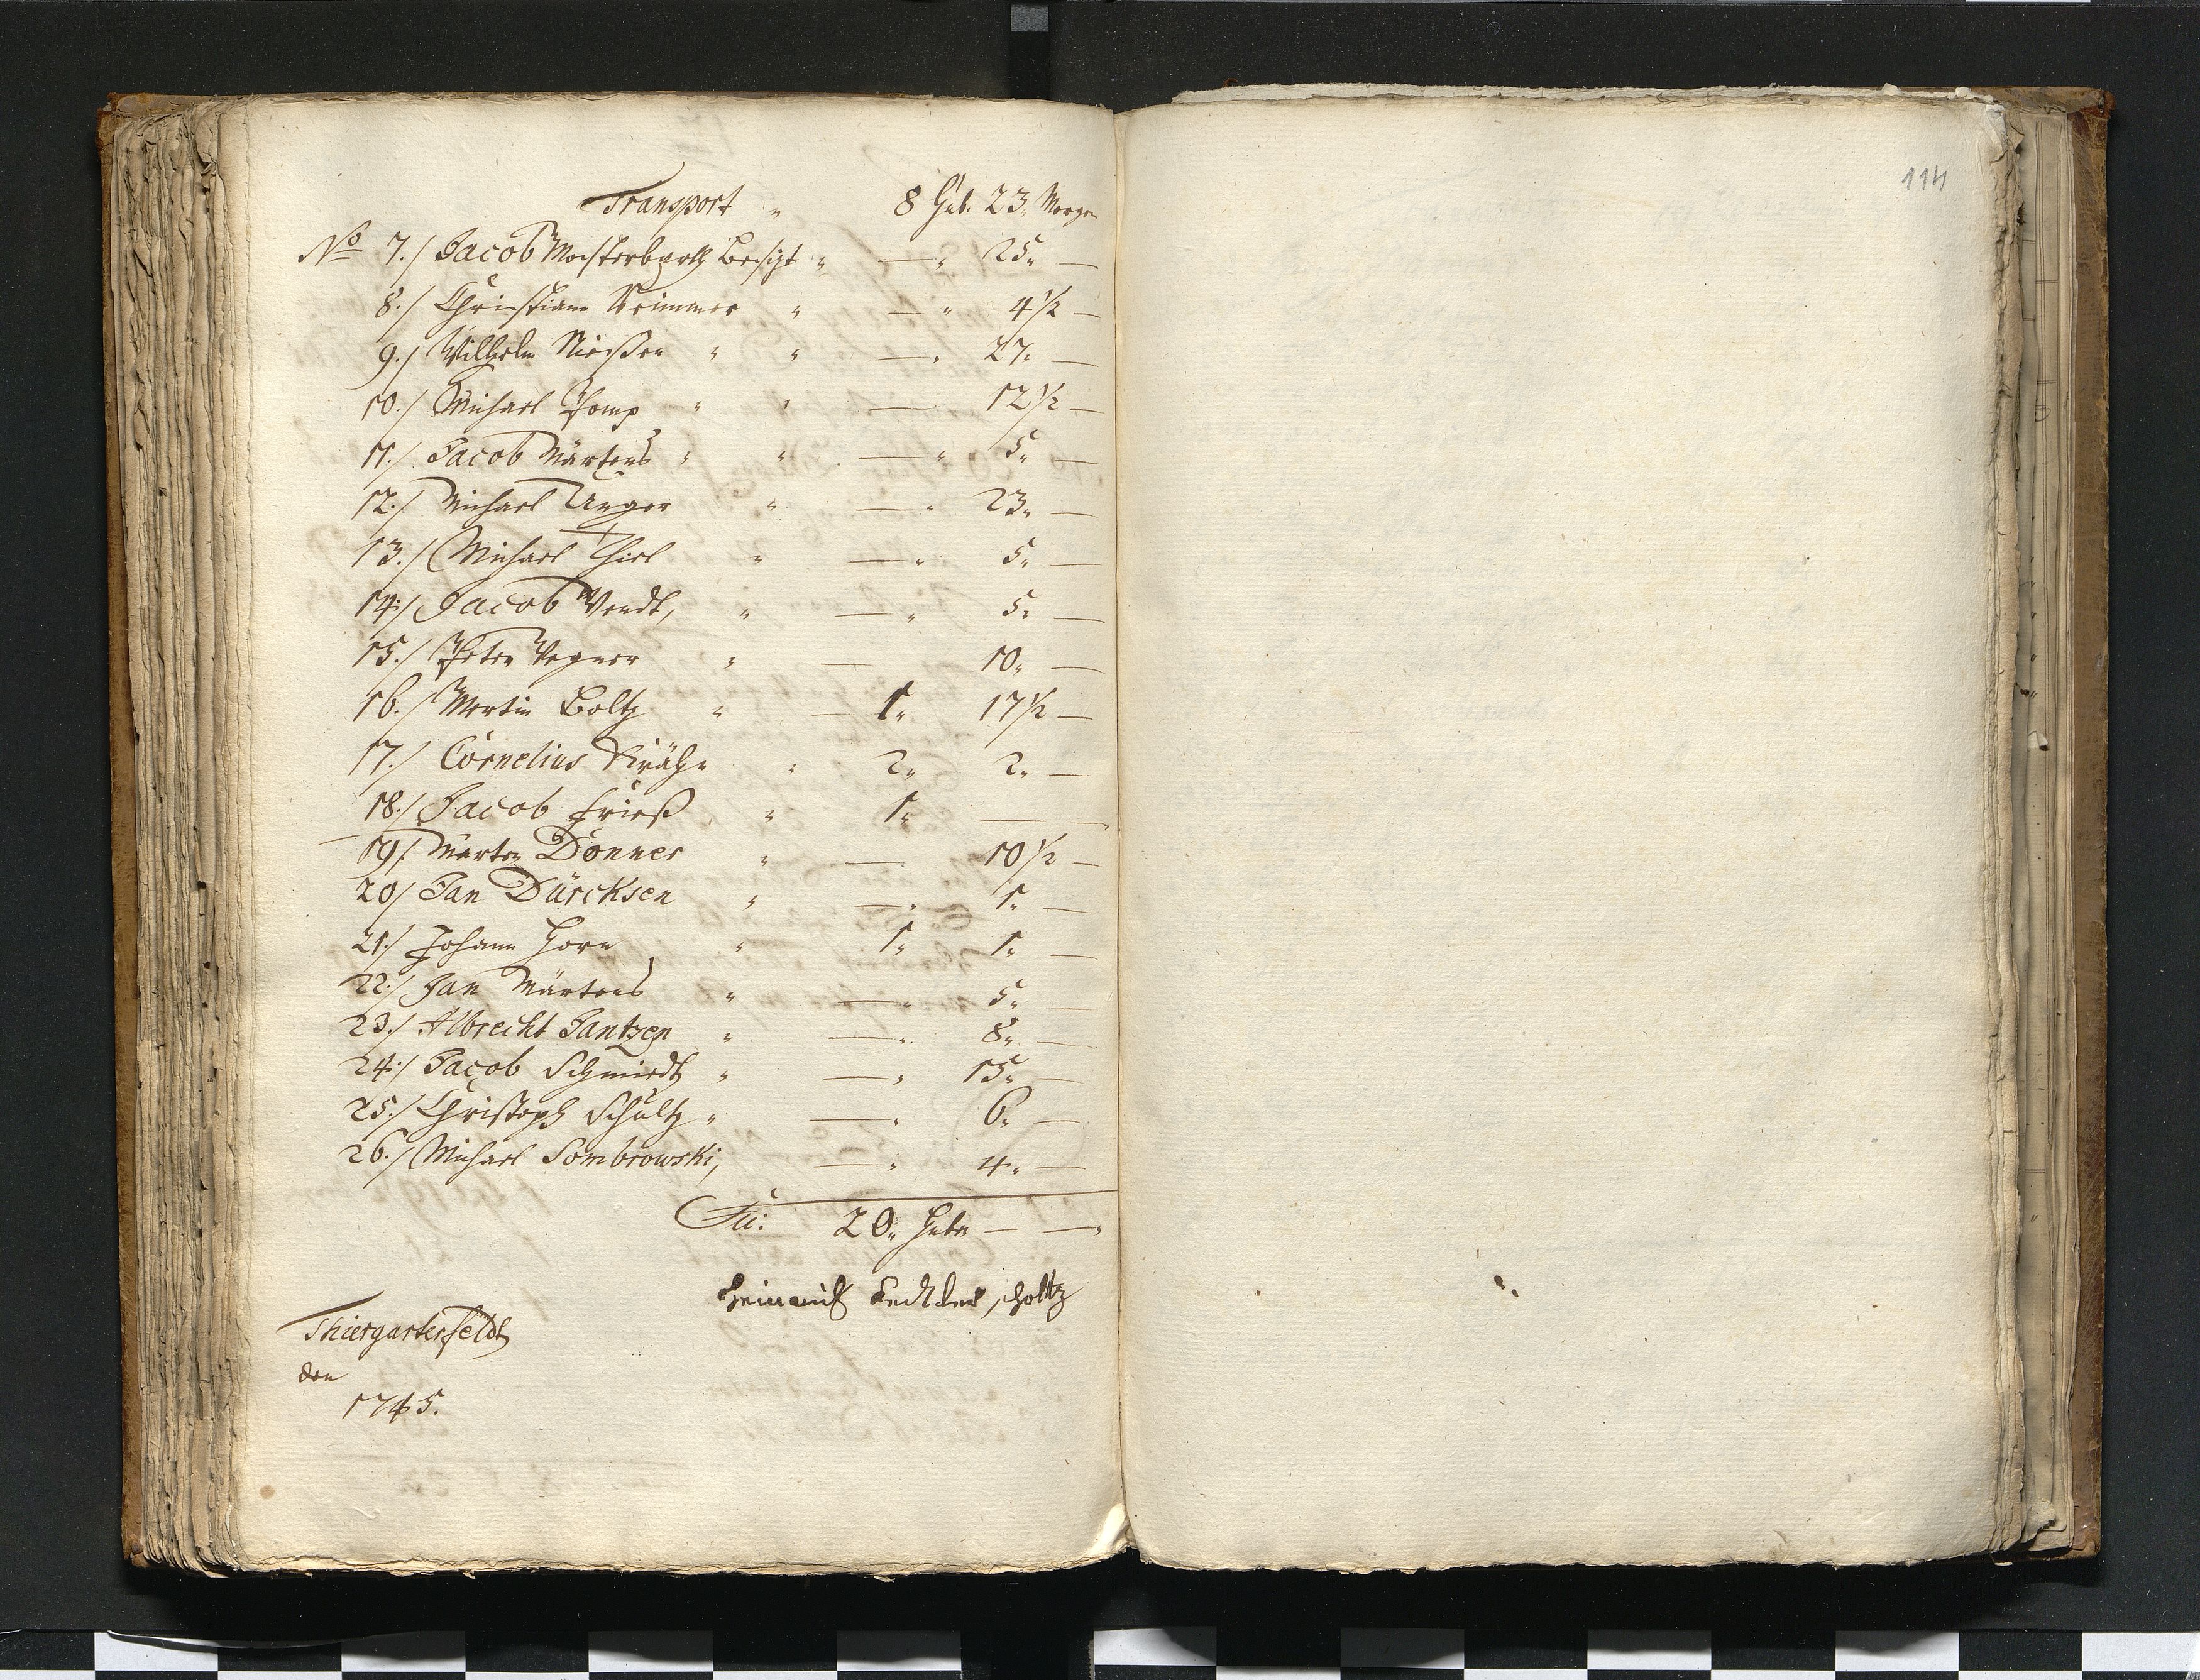 Transport " 8 Hub. 23 Morgen
No 7./ Jacob Besizt " — " 25" —
8./ Christian " — " 4 1/2 —
9./ Wilhelm Niessen " " — " 27" —
10./ Michael " " — 12 1/2 —
11./ Jacob Märtens " " — " 5" —
12./ Michael Unger " — " 23" —
13./ Michael Thiel " — " 5" —
14./ Jacob Wendt, " — " 5" —
15./ Peter Wegner " — 10" —
16./ Martin Boltz " — 1" 17 1/2 —
17./ Cornelius " 2" 2" —
18./ Jacob Frieß " 1" —
19/ Märten Donner " — 10 1/2 —
20/ Jan Dürcksen " — " 1" —
21./ Johann Horn " 1" 1" —
22./ Jan Märtens " — " 5" —
23./ Albrecht Jantzen " — " 8" —
24./ Jacob Schmidt " — " 15" —
25./ Christoph Schultz " — " 6" —
26./ Michael Dombrowski, — " 4" —
Su: 20" Huben — —
Heinrich scholtz
Thiergarterfeldt
den
1745.
114